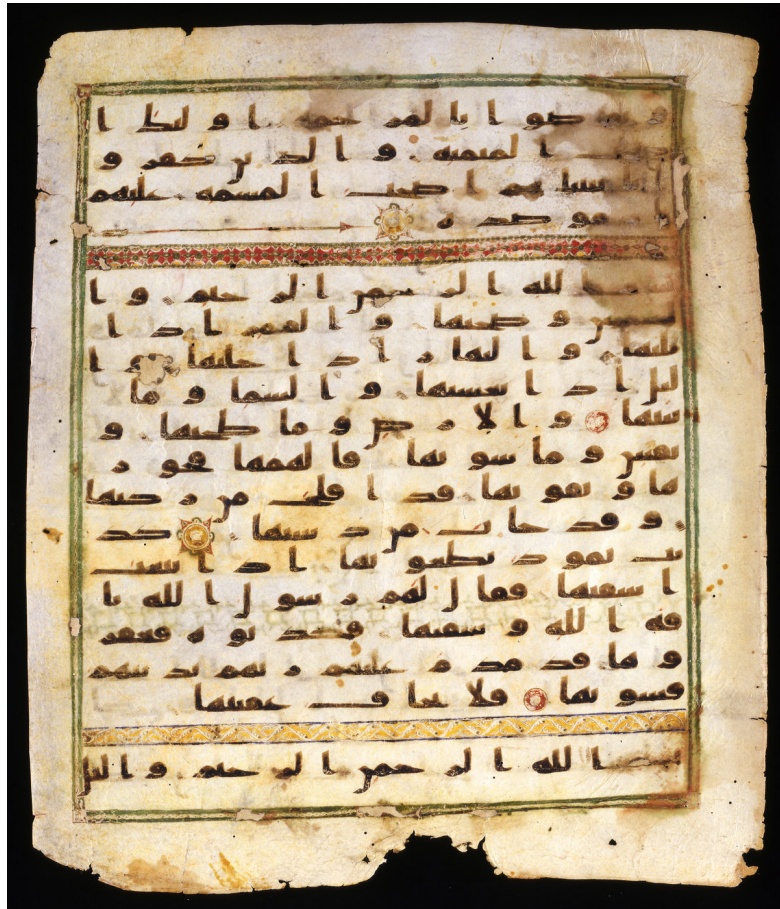 وتوصوا بالمرحمه اولئك ا
صحب الميمنه والذين كفرو
ا بايتنا هم اصحب المشمه عليهم
نار موصده
بسم الله الرحمن الرحيم وا
لشمس وضحيها والقمر اذا
تليها والنهار اذا جليها وا
ليل اذا يغشيها والسما وما
بنيها والارض وما طحيها و
نفس وما سويها فالهمها فجور
ها وتقويها قد افلح من زكيها
وقد خاب من دسيها كذ
بت ثمود بطغويها اذ انبعث
اشقيها فقال لهم رسول الله نا
قه الله وسقيها فكذبوه فعقر
وها فدمدم عليهم ربهم بذنبهم
فسويها فلا يخاف عقبيها
بسم الله الرحمن الرحيم واليل